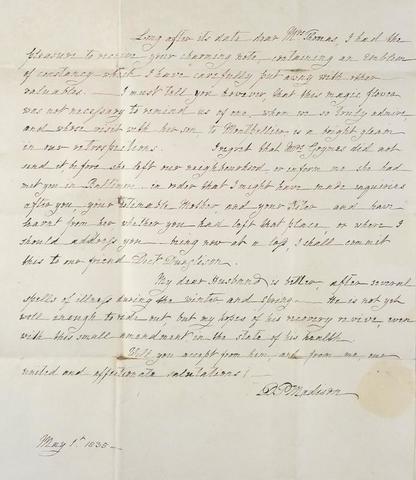 Long after its date dear Mrs Thomas, I had the
pleasure to receive your charming note, containing an Emblem
of constancy which I have carefully put away with other
valuables. — I must tell you however, that this magic flower
was not necessary to remind us of one, whom we so truly admire,
and whose visit with her son, to Montpellier is a bright gleam
in our retrospections. I regret that Mrs did not
send it before she left our neighbourhood, or inform me she had
met you in Baltimore in order that I might have made inquiries
after you, your Mother, and your and have
learnt from her whether you had left that place, or where I
should address you — being now at a loss, I shall commit
this to our friend Doct Dunglison.
My dear Husband is better, after several
spells of illness during the winter and spring — He is not yet
well enough to ride out but my hopes of his recovery revive, even
with this small amendment in the state of his health.
Will you accept from him, and from me, our
united and affectionate salutations! —
D. P. Madison
May 1st 1835 —